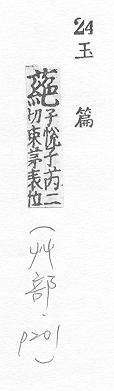 24
玉篇
蕝子悅子芮二
切束茅表位
(艸部·p201)